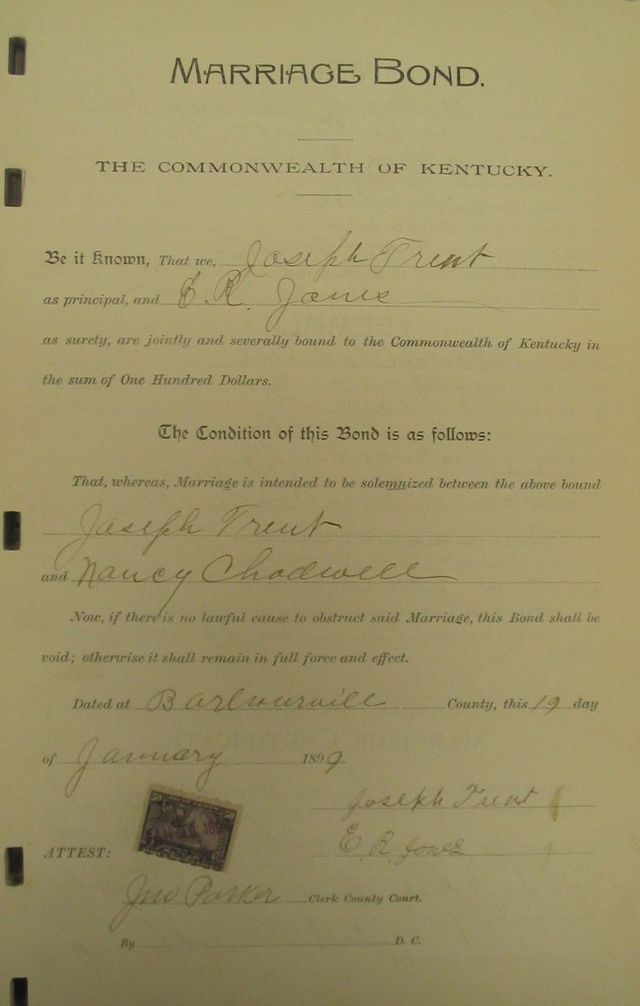 MARRIAGE BOND.
THE COMMONWEALTH OF KENTUCKY.
Be it Known, That we, Joseph Trent
as principal, and E. R. Jones
as surety, are jointly and severally bound to the Commonwealth of Kentucky in
the sum of One Hundred Dollars.
The Condition of this Bond is as follows:
That, whereas, Marriage is intended to be solemnized between the above bound
Joseph Trent
and Nancy Chadwell
Now, if there is no lawful cause to obstruct said Marriage, this Bond shall be
void; otherwise it shall remain in full force and effect.
Dated at Barbourville County, this 19 day
of January 1899
Joseph Trent
E. R. Jones
ATTEST:
Jno Parker Clerk County Court.
By D. C.